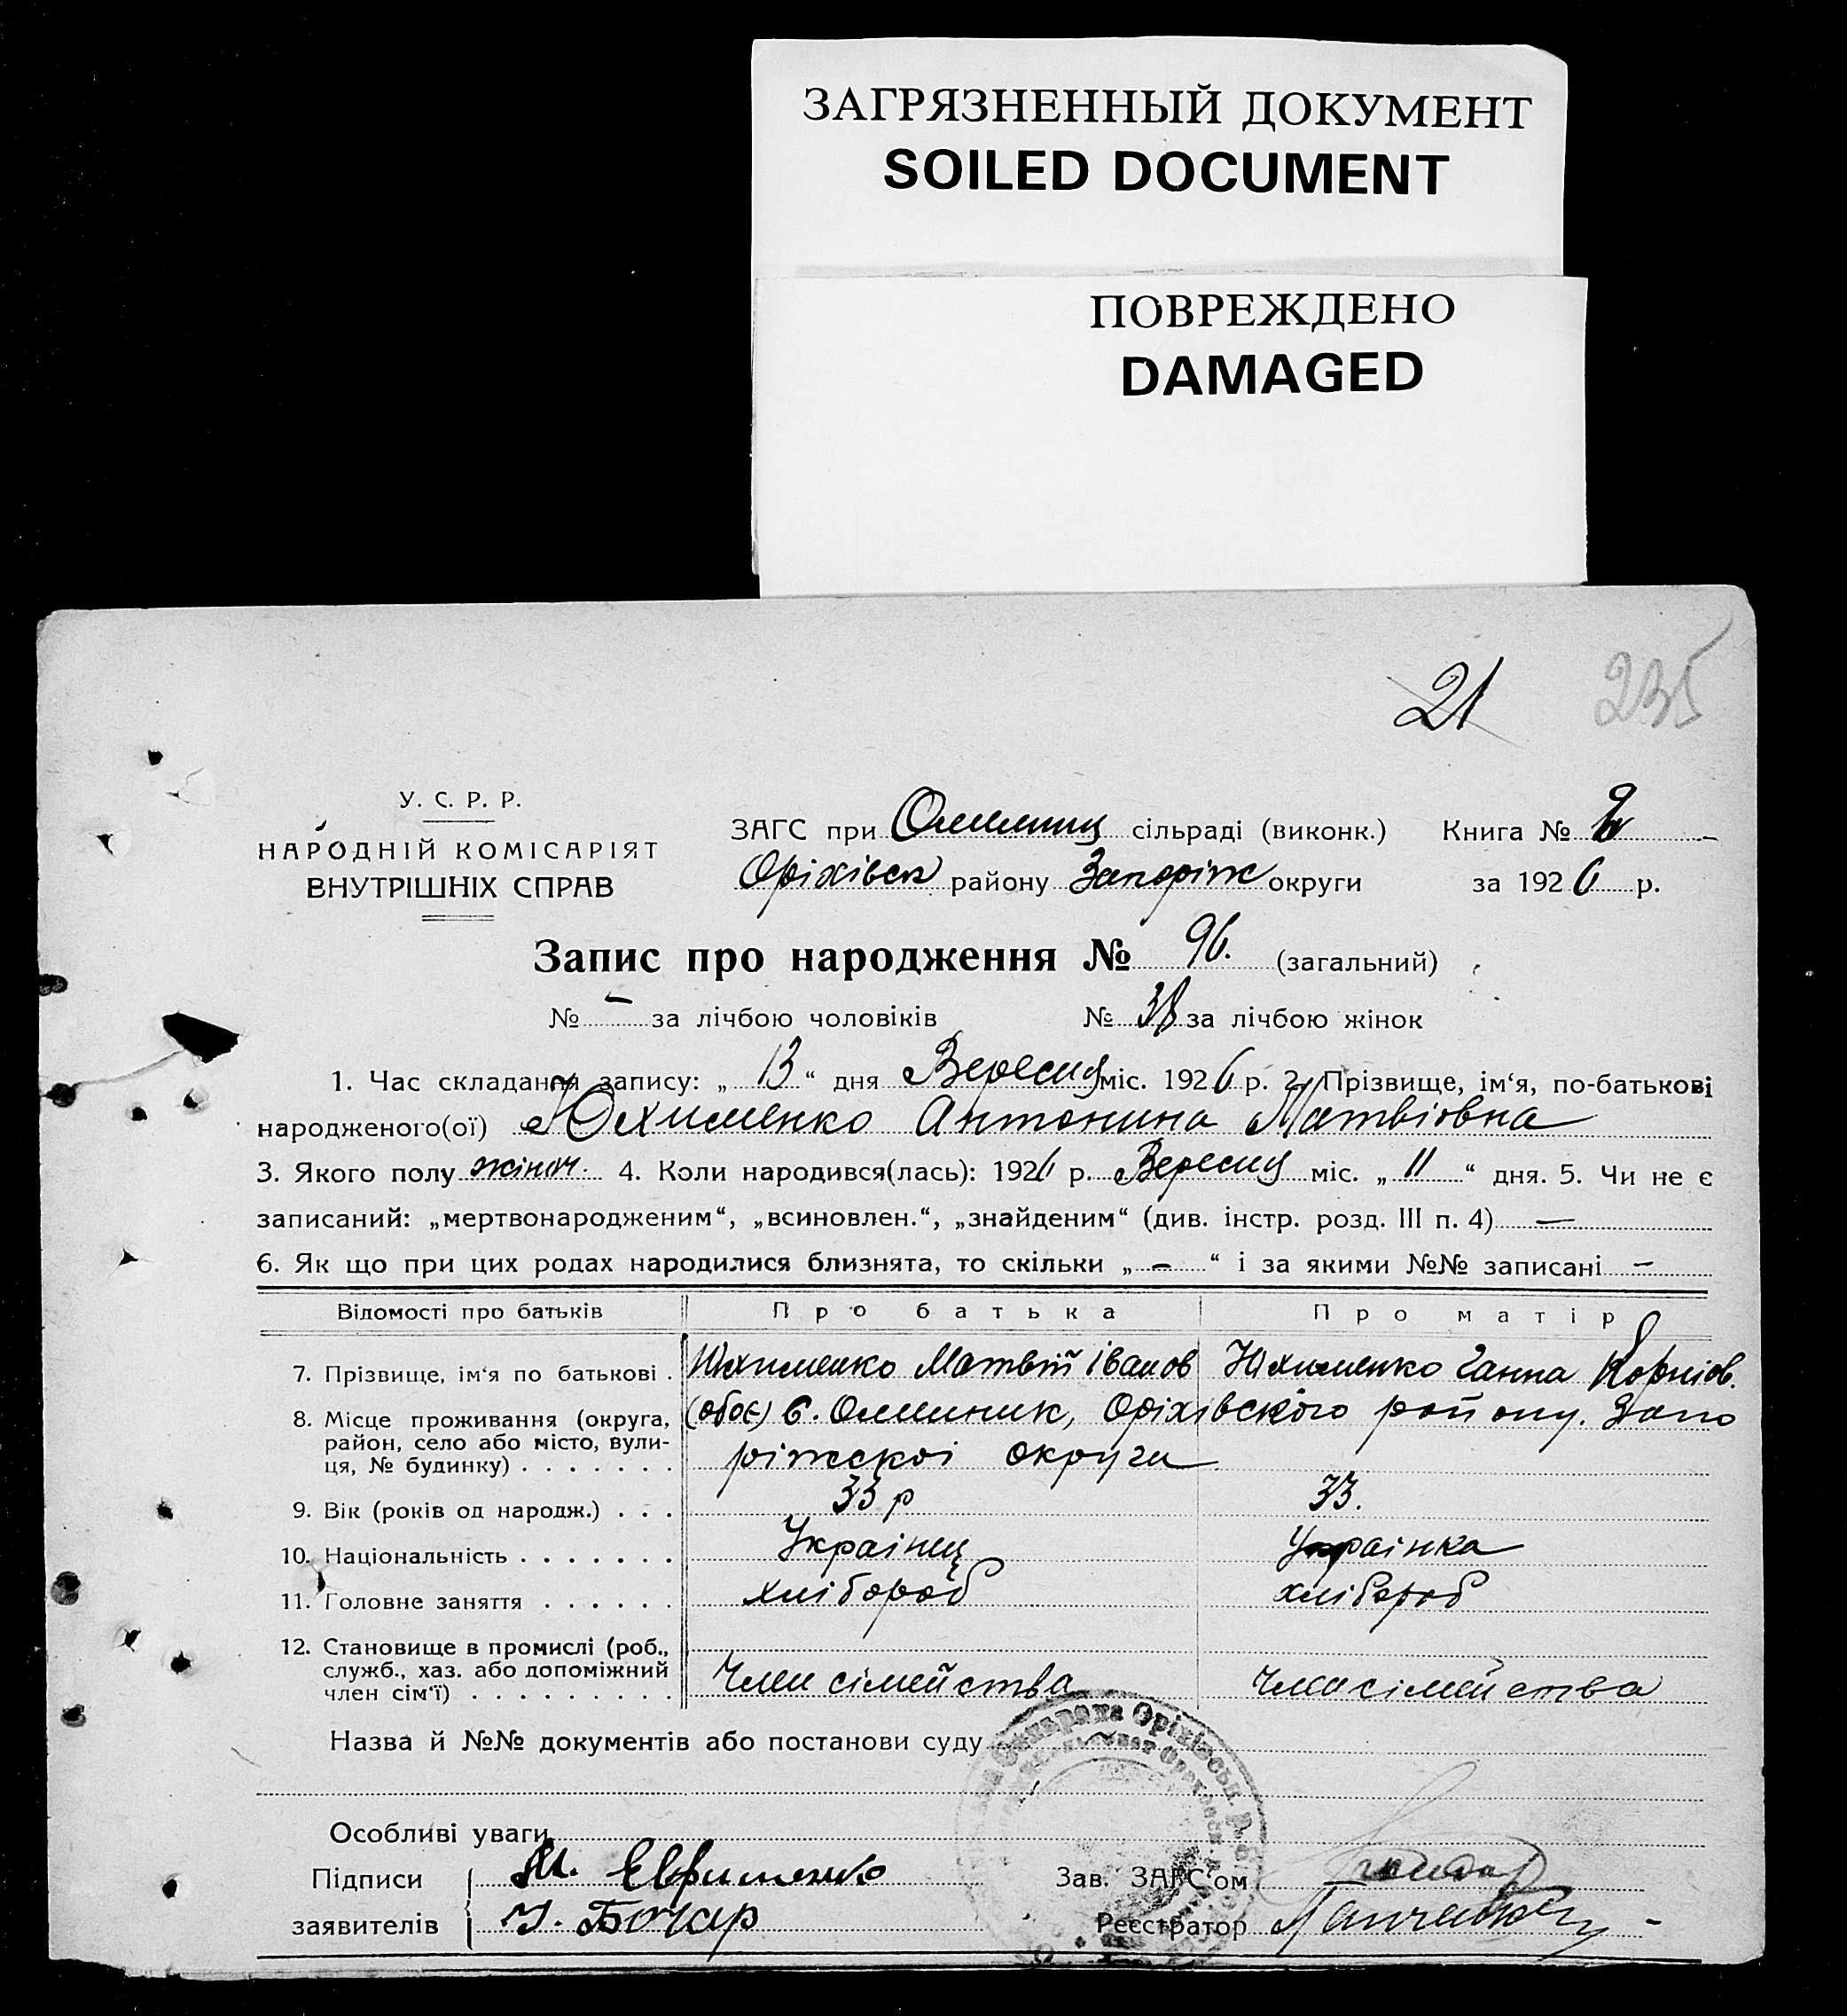 ЗАГРЯЗНЕННЫЙ ДОКУМЕНТ
SOILED DOCUMENT
ПОВРЕЖДЕНО
DAMAGED
21 235
У. С. Р. Р.
НАРОДНІЙ КОМІСАРІЯТ
ВНУТРІШНІХ СПРАВ
ЗАГС при сільраді (виконк.) Книга №
Оріхівск району Запоріж округи за 1926 р.
Запис про народження № 96. (загальний)
№ – за лічбою чоловіків № 38 за лічбою жінок
1. Час складання запису: „ 13 “ дня Вересня міс. 1926 р. 2. Прізвище, ім‘я, по-батькові
народженого(ої) Юхименко Антонина Матвіовна
3. Якого полу жіноч. 4. Коли народився(лась): 1926 р. Вересня міс. „ 11 “ дня. 5. Чи не є
записаний: „мертвонародженим“, „всиновлен.“, „знайденим“ (див. інстр. розд. III п. 4) —
6. Як що при цих родах народилися близнята, то скільки „ – “ і за якими №№ записані –
Відомості про батьків Про батька Про матір
7. Прізвище, ім‘я по батькові . Юхименко Матвій Іванов Юхименко Ганна Корніов.
8. Місце проживання (округа, (обоє) с. Омельник, Оріхівского району. Запо
район, село або місто, вули-
ця, № будинку) . . . . . . . ріжскоі округи
9. Вік (років од народж.) . . . 33 р 33.
10. Національність . . . . . . . Украінец Украінка
11. Головне заняття . . . . . . хлібороб хлібороб
12. Становище в промислі (роб.,
служб., хаз. або допоміжний
член сім‘ї) . . . . . . . . . Член сімейства Член сімейства
Назва й №№ документів або постанови суду
Особливі уваги
Підписи М. Евфименко Зав. ЗАГС‘ом
заявителів Бочар Реєстратор